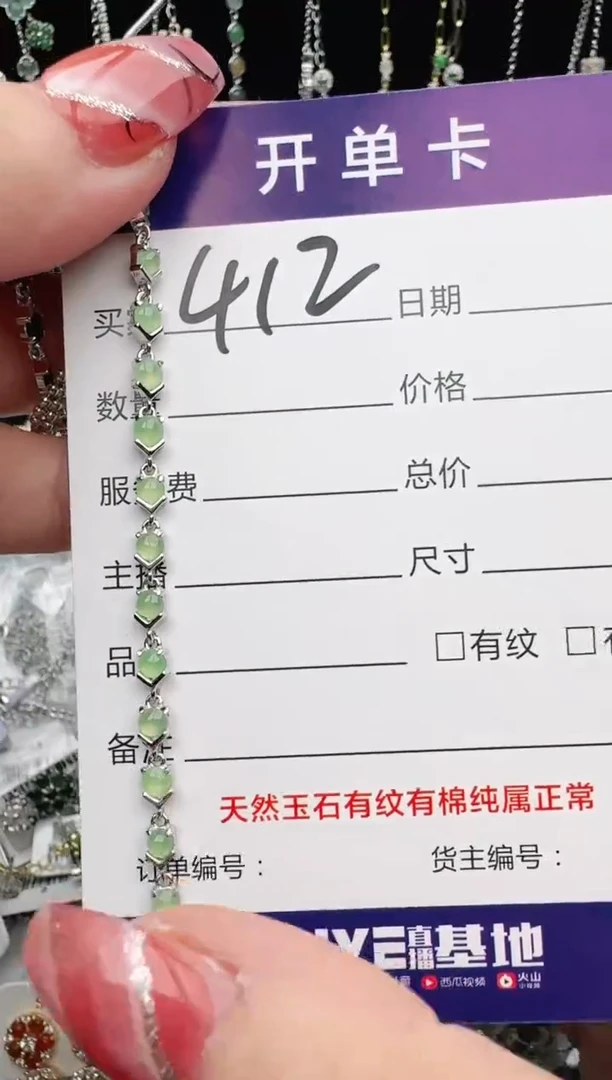 开单卡
412
买 日期
数量 价格
服 费 总价
主播 尺寸
品 □有纹 □
备注
天然玉石有纹有棉纯属正常
订单编号： 货主编号：
直播基地
西瓜视频 火山